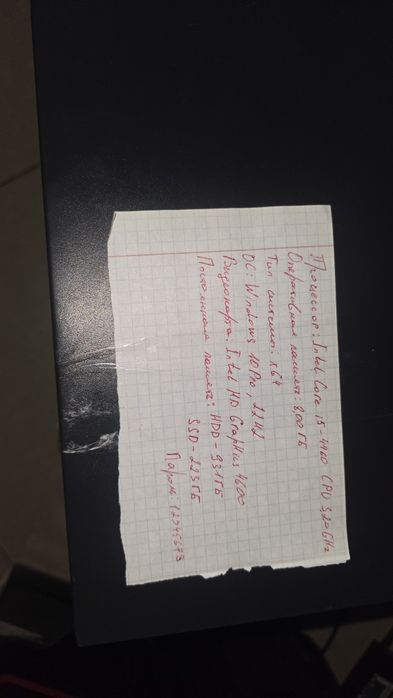 Процессор: Intel Core i5-4460 CPU 3,20GHz
Оперативная память: 8,00 ГБ
Тип системы: x64
ОС: Windows 10 Pro, 22H2
Видеокарта: Intel HD Graphics 4600
Постоянная память: HDD - 931 ГБ
SSD - 223 ГБ
Пароль: 12345678